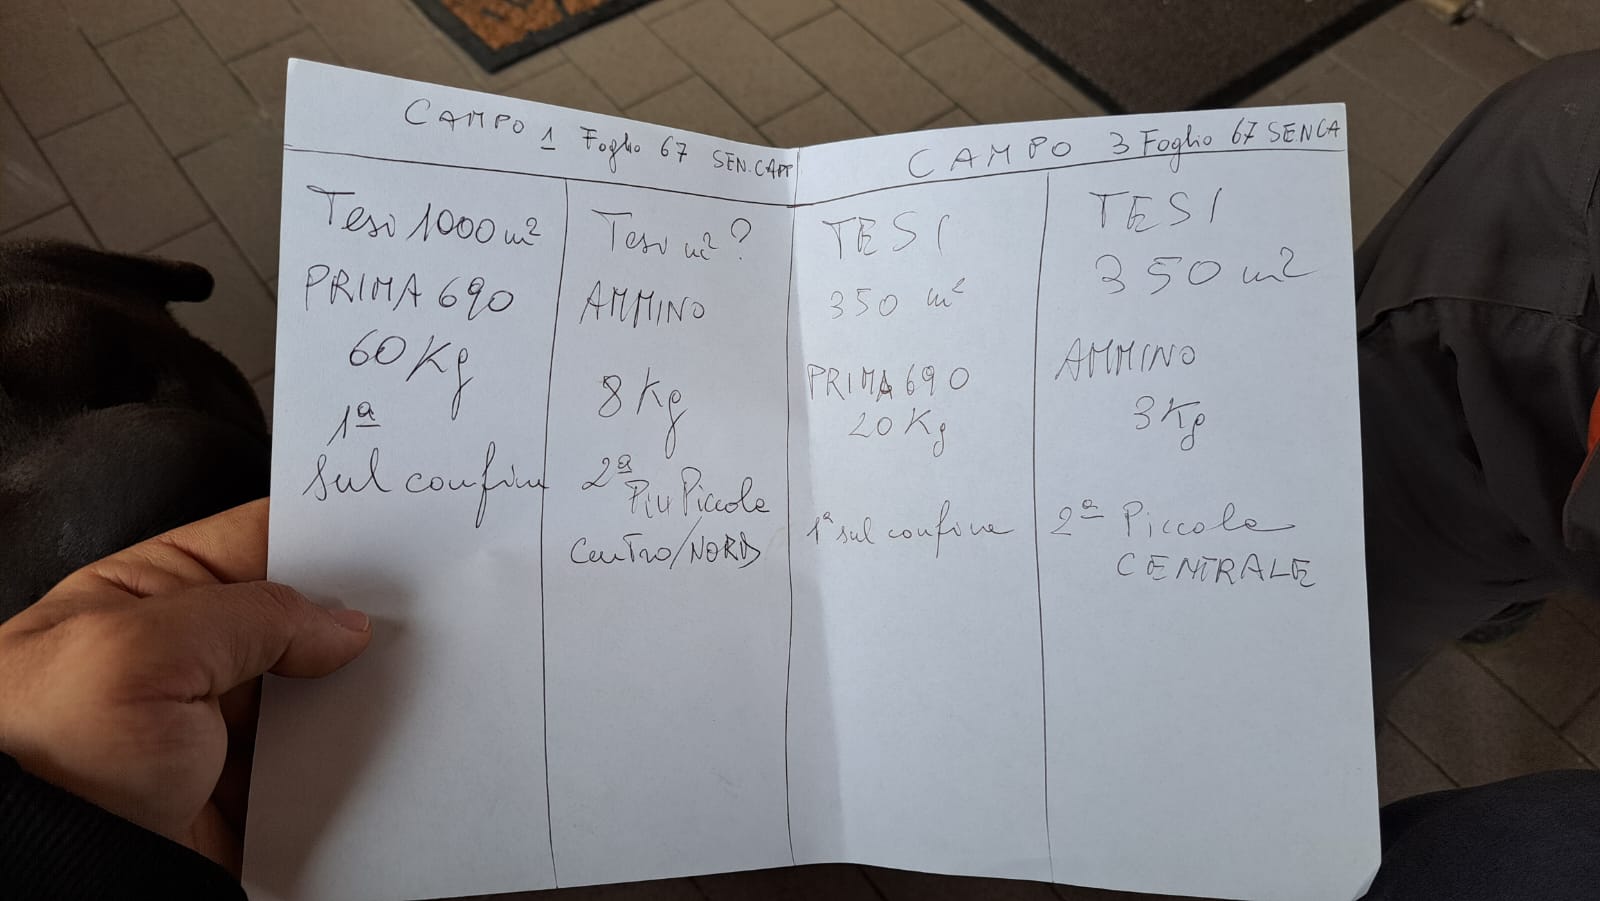 CAMPO 1 Foglio 67 SEN.CAPP
Tesi 1000 m²
PRIMA 690
60 Kg
1ª
sul confine
Tesi m² ?
AMMINO
8 Kg
2ª
Più Piccola
Centro/NORD
CAMPO 3 Foglio 67 SENCA
TESI
350 m²
PRIMA 690
20 Kg
1ª sul confine
TESI
350 m²
AMMINO
3 Kg
2ª Piccola
CENTRALE